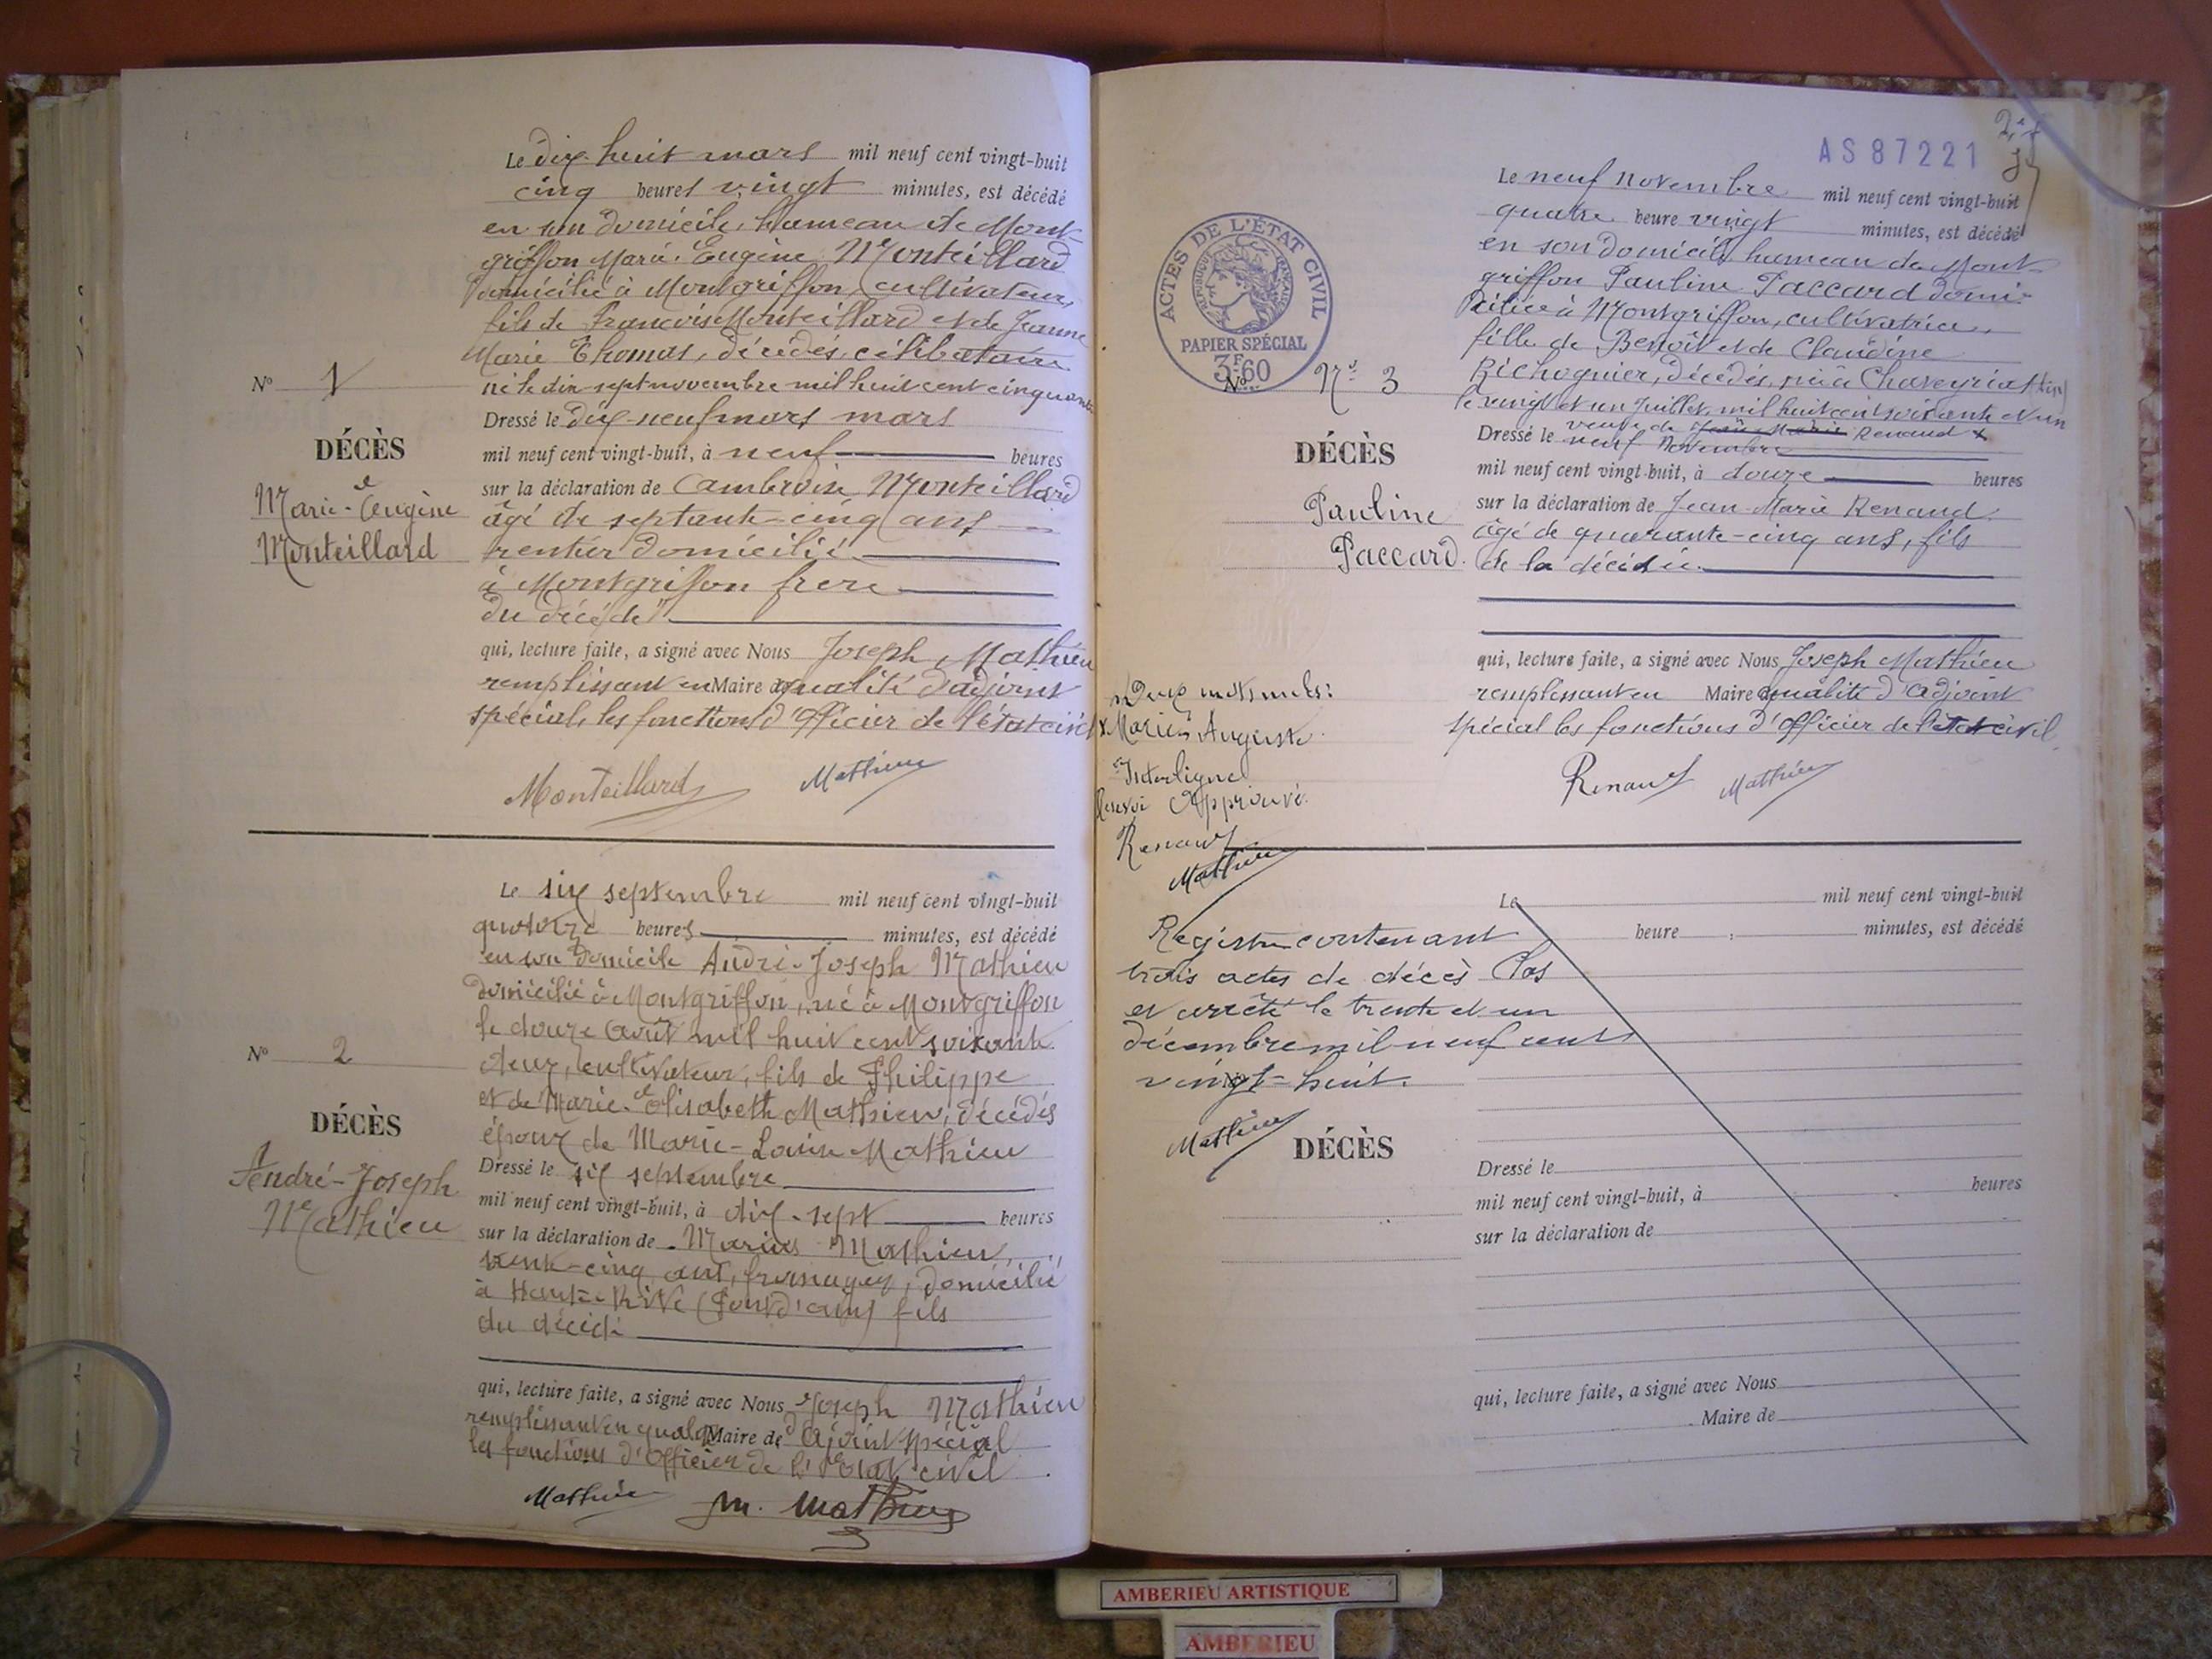 Le dix-huit mars mil neuf cent vingt-huit
cinq heures vingt minutes, est décédé
en son domicile, hameau de Mont-
griffon Marie-Eugène Monteillard
domicilié à Montgriffon, cultivateur,
fils de François Monteillard et de Jeanne
Marie Thomas, décédés, célibataire
né le dix-sept novembre mil huit cent cinquante
Dressé le dix-neuf mars mars
mil neuf cent vingt-huit, à neuf heures
sur la déclaration de Cambroise Monteillard
âgé de septante-cinq ans
rentier domicilié
à Montgriffon frère
du décédé
qui, lecture faite, a signé avec Nous Joseph Mathieu
remplissant en Maire de qualité d'adjoint
spécial, les fonctions d'officier de l'état civil
Monteillard Mathieu
N° 1
DÉCÈS
Marie-Eugène
Monteillard
Le six septembre mil neuf cent vingt-huit
quatorze heures minutes, est décédé
en son domicile André-Joseph Mathieu
domicilié à Montgriffon, né à Montgriffon
le douze août mil huit cent soixante
deux, cultivateur, fils de Philippe
et de Marie-Elisabeth Mathieu, décédés
époux de Marie-Louise Mathieu
Dressé le six septembre
mil neuf cent vingt-huit, à dix-sept heures
sur la déclaration de Marius Mathieu,
trente-cinq ans, fromager, domicilié
à Haute Rive (Pont d'ain) fils
du décédé
qui, lecture faite, a signé avec Nous Joseph Mathieu
remplissant en qualité Maire de d'ajoint spécial
les fonctions d'officier de l'Etat civil
Mathieu M. Mathieu
N° 2
DÉCÈS
André-Joseph
Mathieu
AS 87221
ACTES DE L'ÉTAT CIVIL
RÉPUBLIQUE FRANÇAISE
PAPIER SPÉCIAL
3F60
Le neuf novembre mil neuf cent vingt-huit
quatre heure vingt minutes, est décédé
en son domicile hameau de Mont-
griffon Pauline Paccard domi-
ciliée à Montgriffon, cultivatrice,
fille de Benoît et de Claudine
Richognier, décédés, née à Chaveyriat (Ain)
le vingt et un Juillet mil huit cent soixante et un
veuve de Jean-Marie Renaud x
Dressé le neuf Novembre
mil neuf cent vingt-huit, à douze heures
sur la déclaration de Jean-Marie Renaud
âgé de quarante-cinq ans, fils
de la décédée.
qui, lecture faite, a signé avec Nous Joseph Mathieu
remplissant en Maire de qualité d'adjoint
spécial les fonctions d'officier de l'état civil
Renaud Mathieu
N° 3
DÉCÈS
Pauline
Paccard.
Deux mots nuls:
x Marie Auguste
Interligne
Approuvé.
Renaud
Mathieu
Registre contenant
trois actes de décès Clos
et arrêté le trente et un
décembre mil neuf cent
vingt-huit.
Mathieu
Le mil neuf cent vingt-huit
heure minutes, est décédé
N°
DÉCÈS
Dressé le
mil neuf cent vingt-huit, à heures
sur la déclaration de
qui, lecture faite, a signé avec Nous
Maire de
AMBERIEU ARTISTIQUE
AMBERIEU